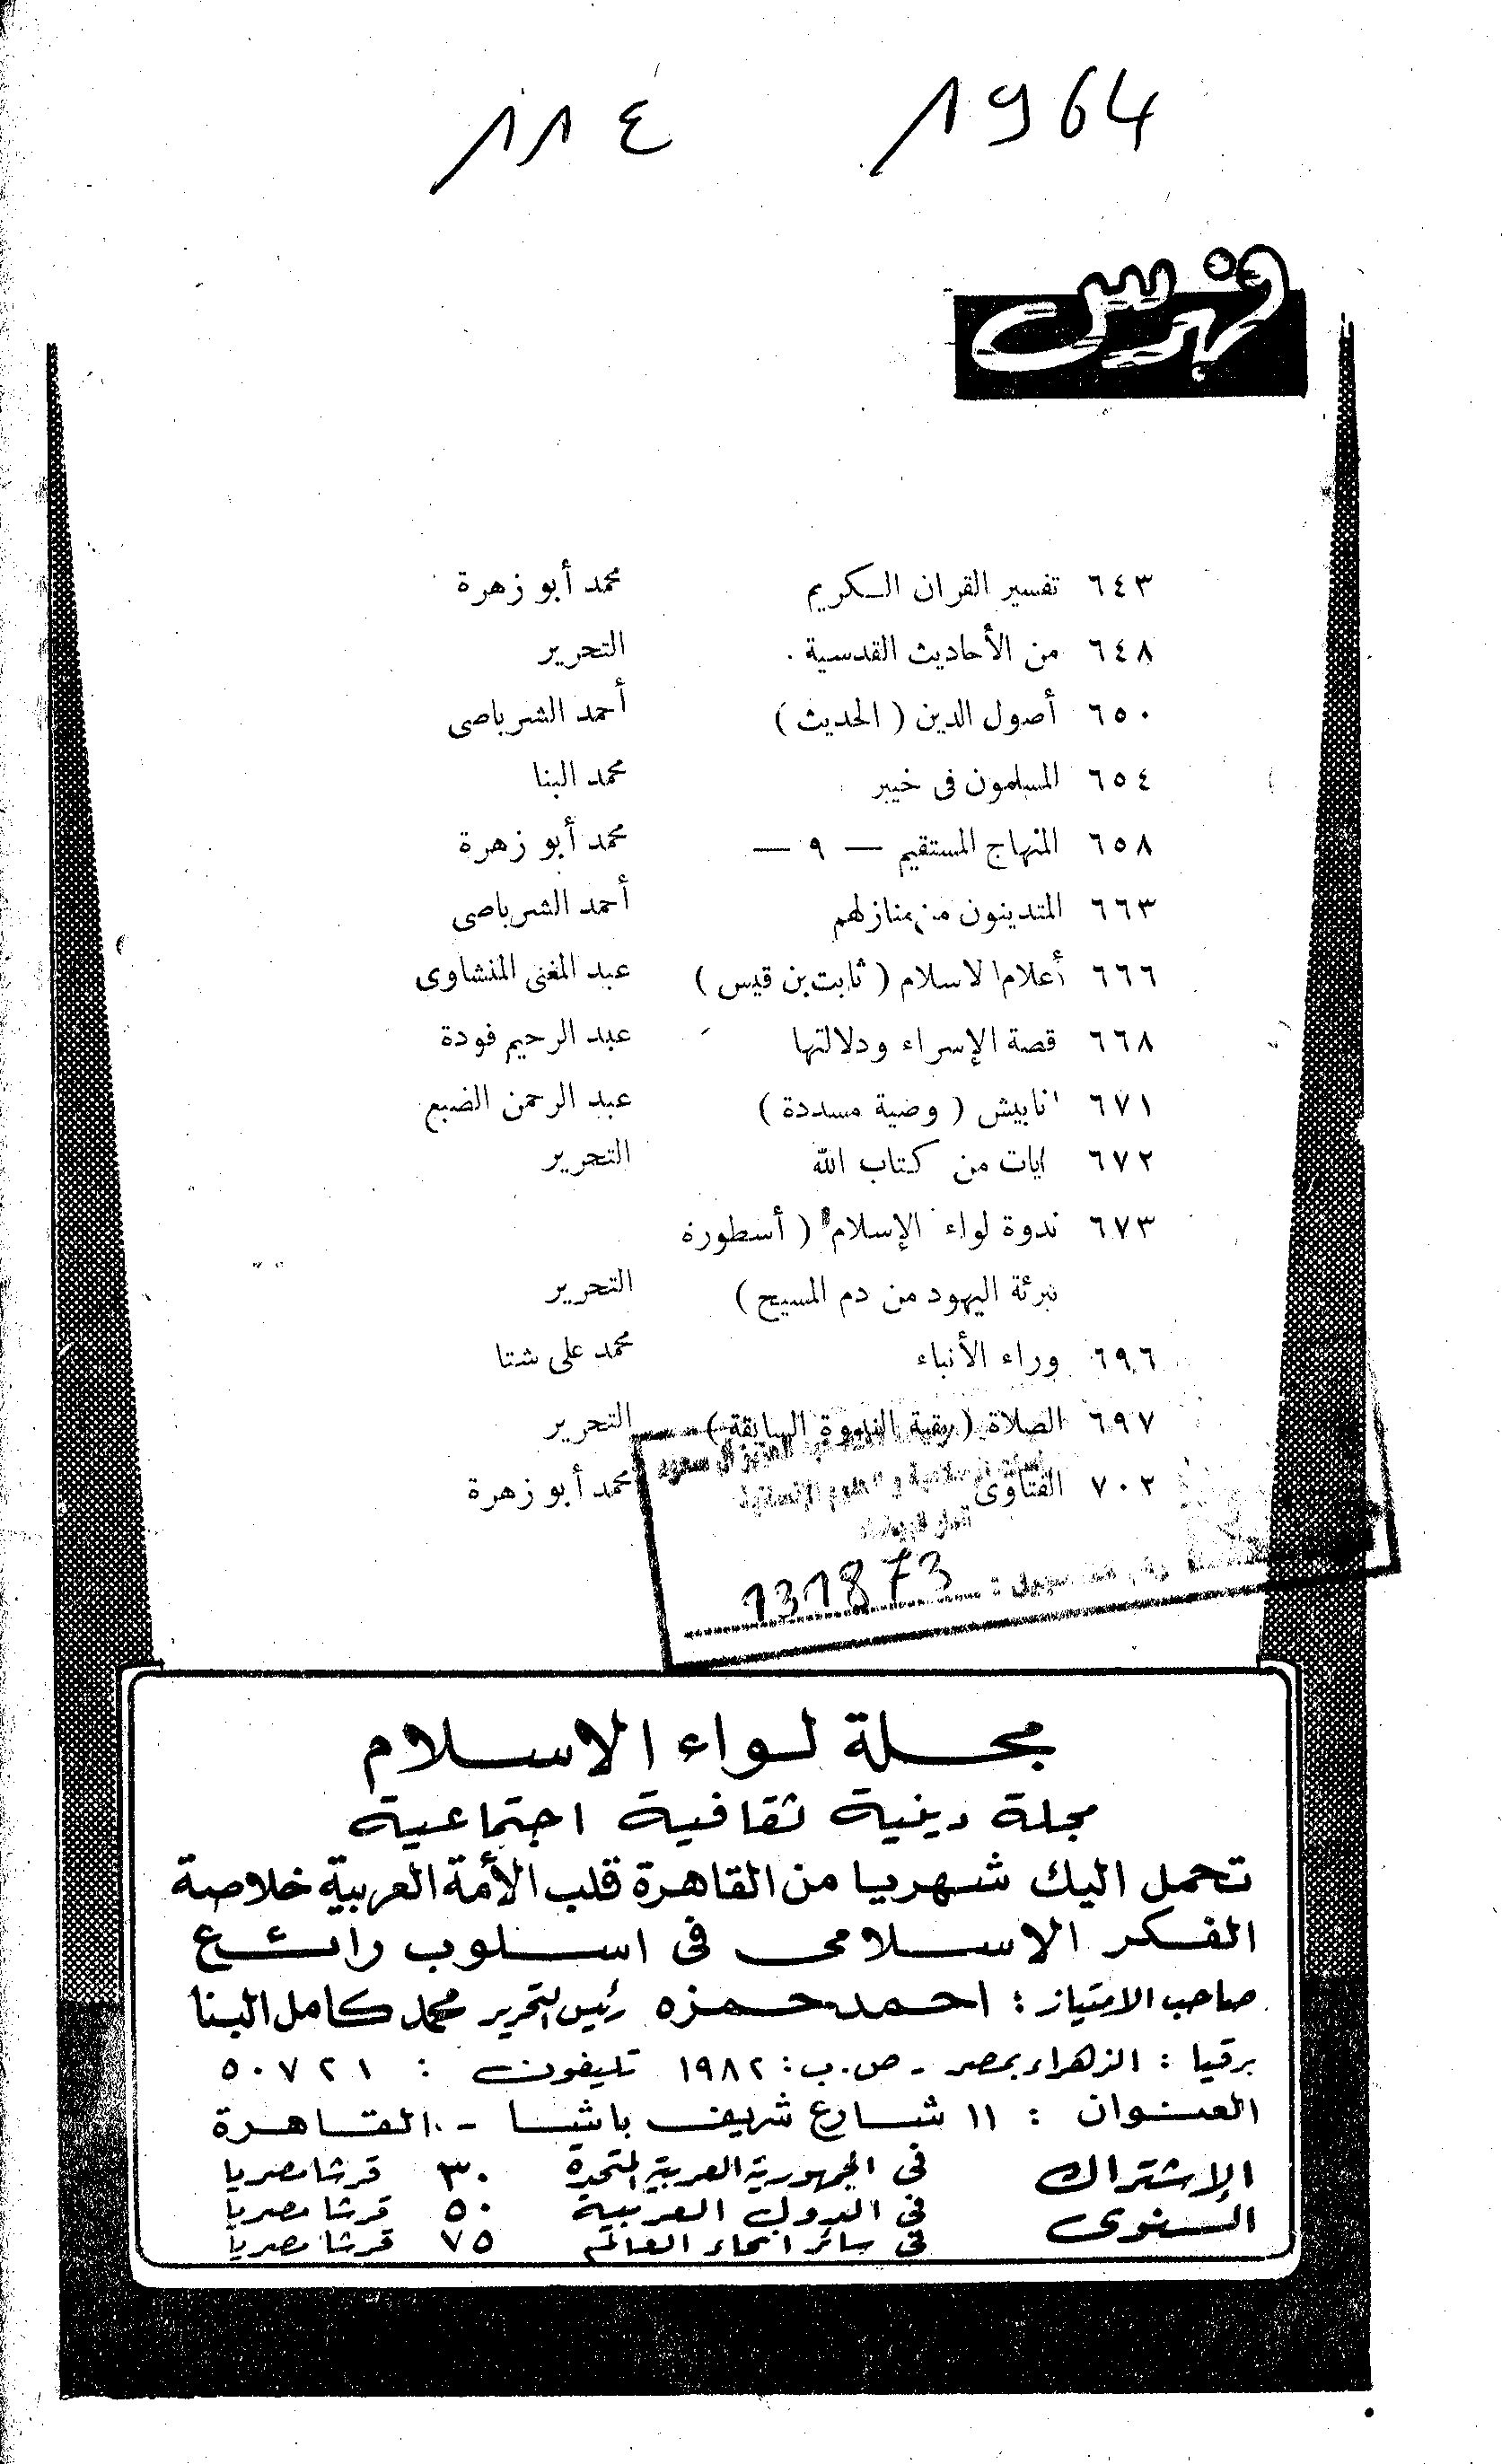 1964
١١٤
فهرس
٦٤٣ تفسير القران الكريم محمد أبو زهرة
٦٤٨ من الأحاديث القدسية . التحرير
٦٥٠ أصول الدين ( الحديث ) أحمد الشرباصى
٦٥٤ المسلمون فى خيبر محمد البنا
٦٥٨ المنهاج المستقيم — ٩ — محمد أبو زهرة
٦٦٣ المتدينون من منازلهم أحمد الشرباصى
٦٦٦ أعلام الاسلام ( ثابت بن قيس ) عبد المغنى المنشاوى
٦٦٨ قصة الإسراء ودلالتها عبد الرحيم فودة
٦٧١ انابيش ( وضية مسددة ) عبد الرحمن الضبع
٦٧٢ ايات من كتاب الله التحرير
٦٧٣ ندوة لواء الإسلام ( أسطورة
تبرئة اليهود من دم المسيح ) التحرير
٦٩٦ وراء الأنباء محمد على شتا
٦٩٧ الصلاة ( بقية الندوة السابقة ) التحرير
٧٠٢ الفتاوى محمد أبو زهرة
131873
مجلة لواء الاسلام
مجلة دينية ثقافية اجتماعية
تحمل اليك شهريا من القاهرة قلب الأمة العربية خلاصة
الفكر الاسلامى فى اسلوب رائع
صاحب الامتياز : احمد حمزه رئيس التحرير محمد كامل البنا
برقيا : الزهراء بمصر - ص.ب : ١٩٨٢ تليفون : ٥٠٧٢١
العنوان : ١١ شارع شريف باشا - القاهرة
الإشتراك السنوى
فى الجمهورية العربية المتحدة ٣٠ قرشا مصريا
فى الدول العربية ٥٠ قرشا مصريا
فى سائر انحاء العالم ٧٥ قرشا مصريا